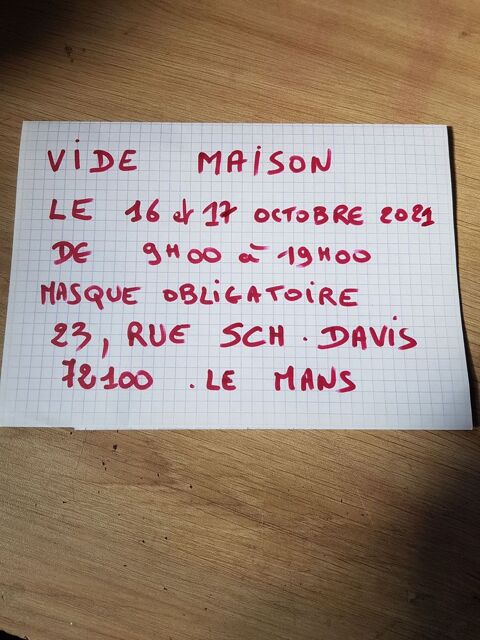 VIDE MAISON
LE 16 et 17 OCTOBRE 2021
DE 9H00 à 19H00
MASQUE OBLIGATOIRE
23, RUE SCH. DAVIS
72100 . LE MANS